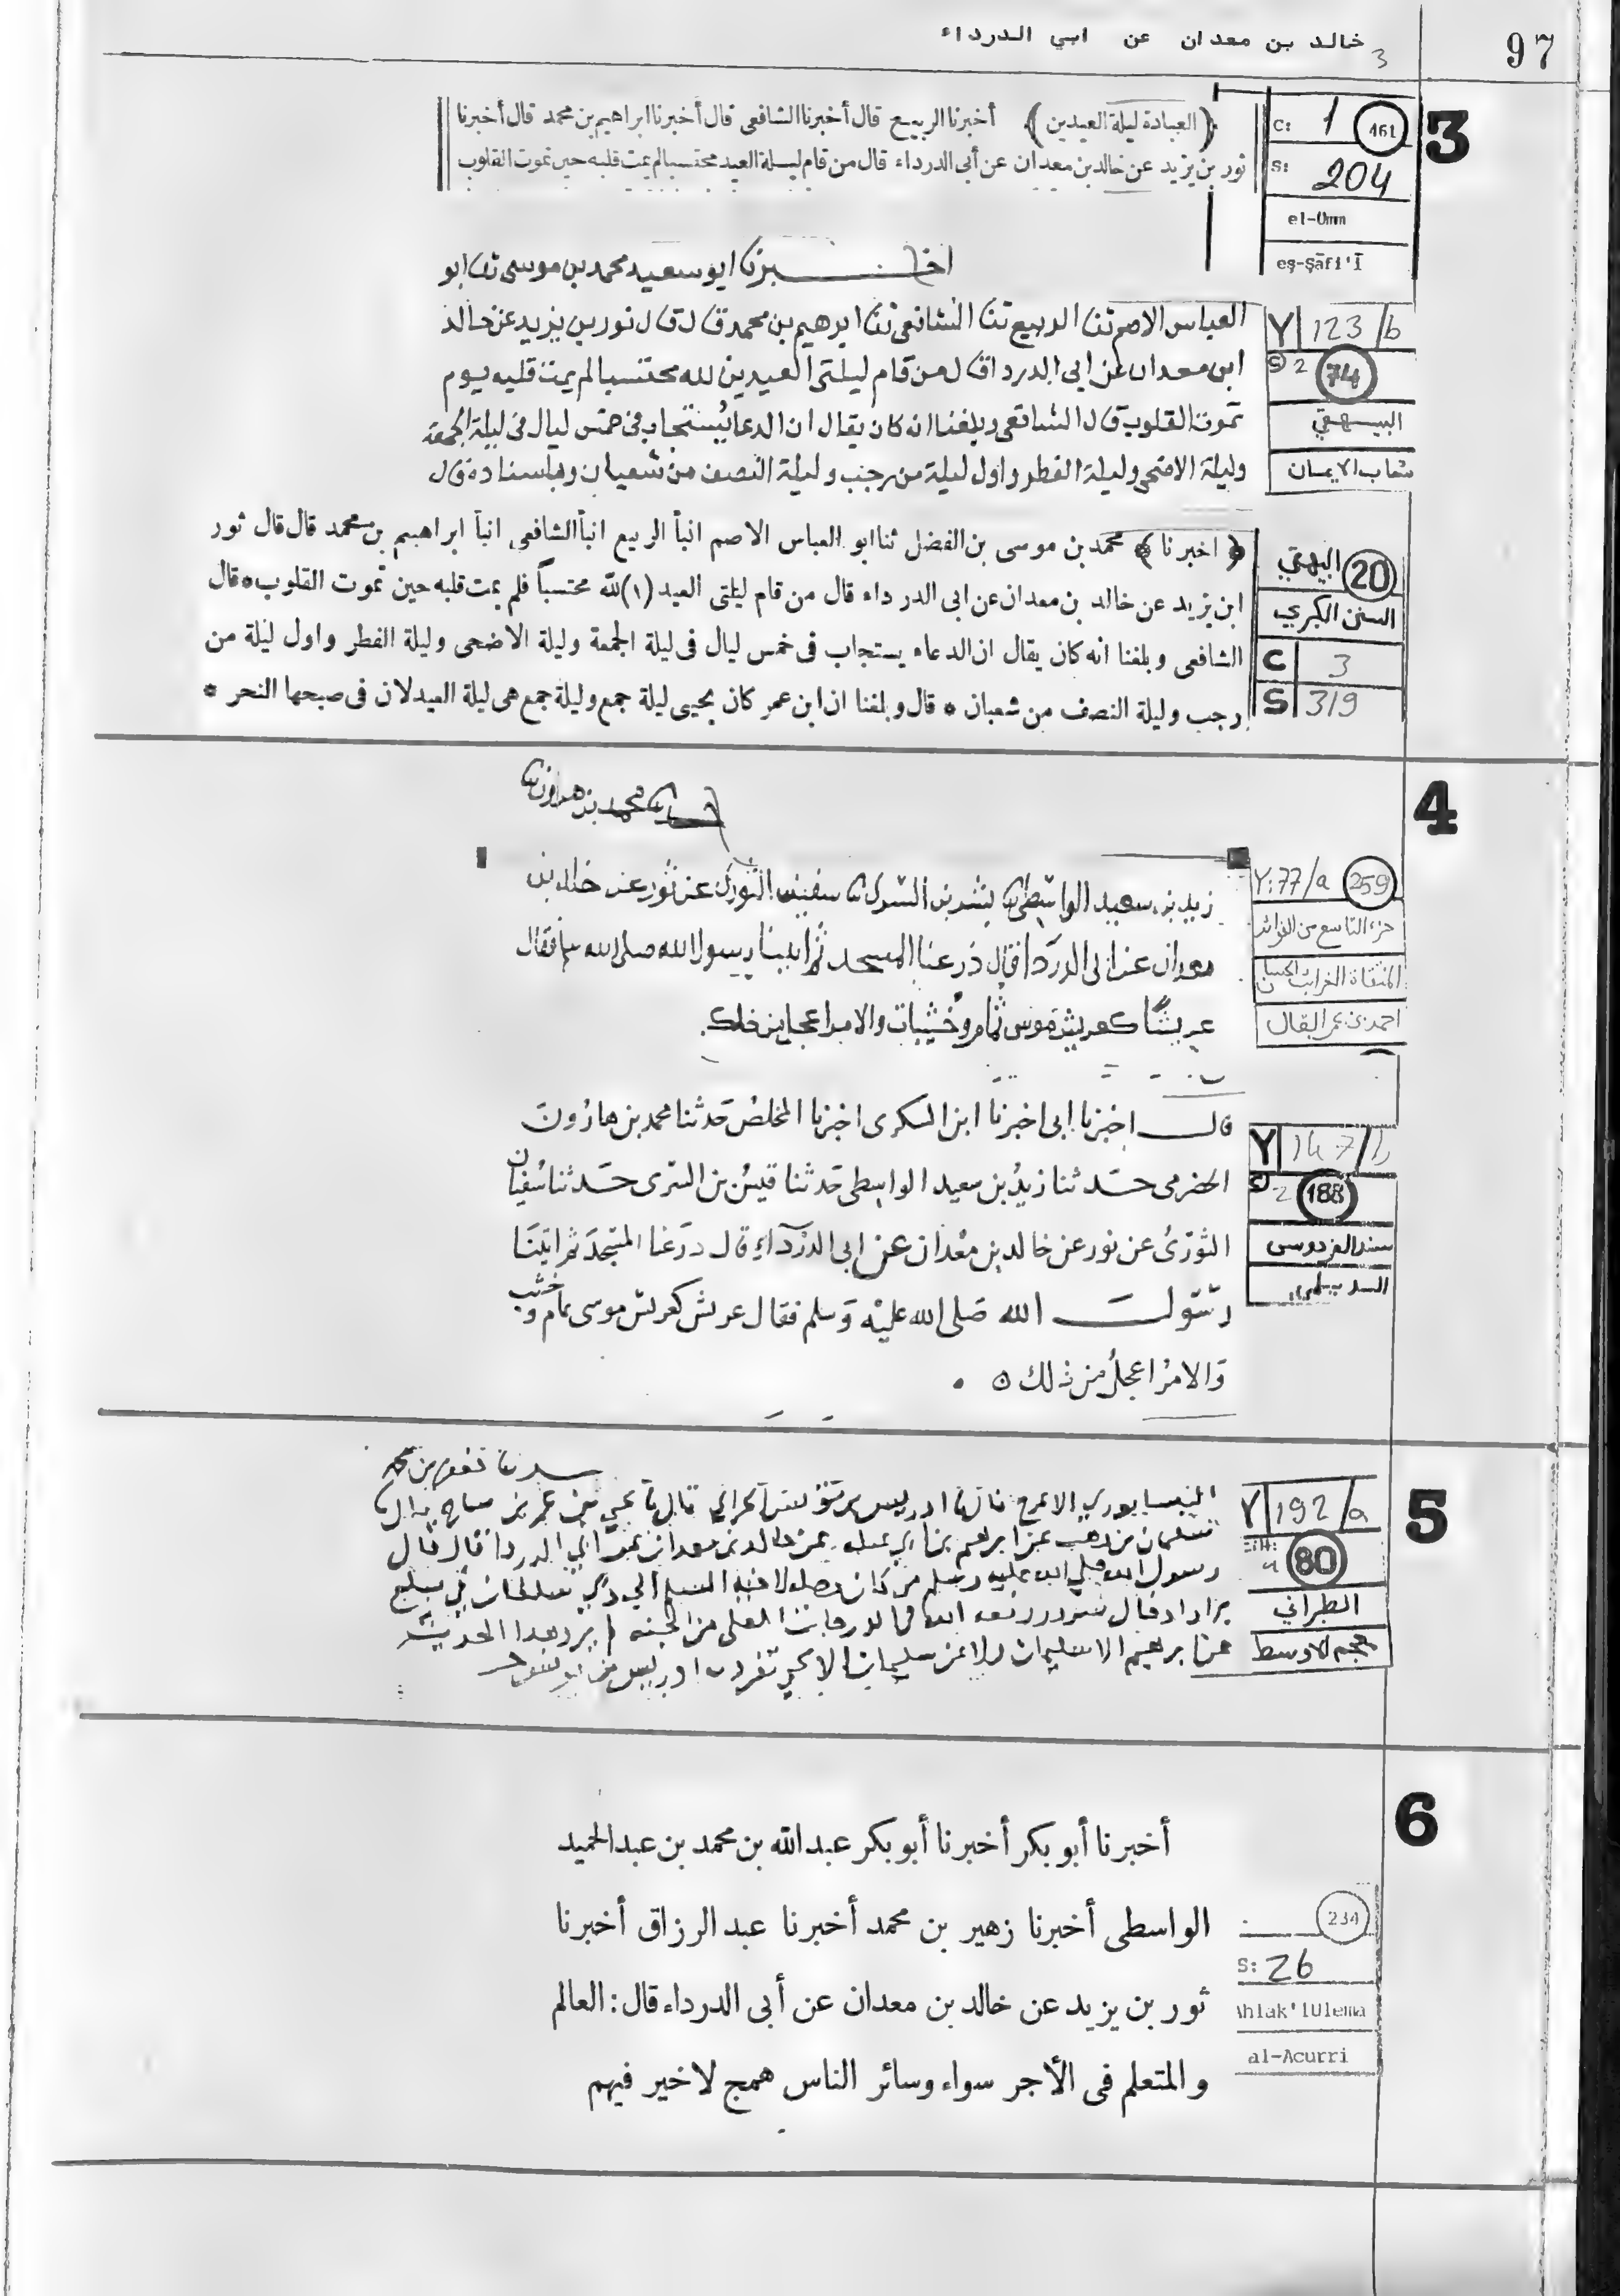 97
خالد بن معدان عن ابي الدرداء
3
3
C: 1 161
S: 204
el-Umm
eş-Şāfi'ī
(العبادة ليلة العيدين) أخبرنا الربيع قال أخبرنا الشافعى قال أخبرنا ابراهيم بن محمد قال أخبرنا
ثور بن يزيد عن خالد بن معدان عن أبى الدرداء قال من قام ليلة العيد محتسبا لم يمت قلبه حين تموت القلوب
Y 123/b
2 74
البيهقي
شعاب الايمان
اخبرنا ابو سعيد محمد بن موسى ثنا ابو
العباس الاصم ثنا الربيع ثنا الشافعى ثنا ابرهيم بن محمد قال قال ثور بن يزيد عن خالد
ابن معدان عن ابى الدردا قال من قام ليلتى العيدين لله محتسبا لم يمت قلبه يوم
تموت القلوب قال الشافعى وبلغنا انه كان يقال ان الدعا يُستجاب فى خمس ليال فى ليلة الجمعة
وليلة الاضحى وليلة الفطر واول ليلة من رجب وليلة النصف من شعبان وباسناده قال
البيهقي 20
السنن الكبري
C 3
S 319
﴿ اخبرنا ﴾ محمد بن موسى بن الفضل ثنا ابو العباس الاصم انبأ الربيع انبأ الشافعى انبأ ابراهيم بن محمد قال قال ثور
ابن يزيد عن خالد بن معدان عن ابى الدرداء قال من قام ليلتى العيد (١) لله محتسباً فلم يمت قلبه حين تموت القلوب * قال
الشافعى وبلغنا انه كان يقال ان الدعاء يستجاب فى خمس ليال فى ليلة الجمعة وليلة الاضحى وليلة الفطر واول ليلة من
رجب وليلة النصف من شعبان * قال وبلغنا ان ابن عمر كان يحيى ليلة جمع وليلة جمع هى ليلة العيد لان فى صبحها النحر *
4
Y: 77/a 259
جزء التاسع من الفوائد
المنتقاة الغرائب والحسان
احمد بن عمر البقال
محمد بن هرون
زيد بن سعيد الواسطى بشر بن السرى سفين الثورى عن ثور عن خالد بن
معدان عن ابى الدردا قال ذرعنا المسجد ثم اتينا رسول الله صلى الله فقال
عريشا كعريش موسى ثمام وخشيبات والامر اعجل من ذلك
Y 147/b
2 188
سند الفردوسى
الديلمي
قال اخبرنا ابى اخبرنا ابن السكرى اخبرنا المخلص حَدثنا محمد بن هارُونَ
الحضرمى حَدثنا زيدُ بن سعيد الواسطى حَدثنا قيسُ بن السَرى حَدثنا سُفيان
الثورىُ عن ثور عن خالد بن معْدان عن ابى الدَرداءِ قال ذرَعنا المسَجدَ ثم اتَينَا
رسَول الله صَلى الله عليْه وَسلم فقال عريش كعريش موسى ثمام وخشب
وَالامرُ اعجلُ من ذلك
5
Y 192/a
80
الطبراني
معجم الاوسط
النيسابوري الاعرج قال ادريس بن يونس الحراني قال
سليمان بن وهب عن ابرهيم بن ابي عبله عن خالد بن معدان عن ابي الدردا قال قال
رسول الله صلي الله عليه وسلم من كان وصله لاخيه المسلم الي ذي سلطان في مبلغ
بر او ادخال سرور رفعه الله في الدرجات العلى من الجنه لم يرو هذا الحديث
عن ابرهيم الا سليمان ولا عن سليمان الا تفرد به ادريس بن يونس
6
234
S: 26
Ahlak'lUlema
al-Acurri
أخبرنا أبو بكر أخبرنا أبو بكر عبد الله بن محمد بن عبد الحميد
الواسطى أخبرنا زهير بن محمد أخبرنا عبد الرزاق أخبرنا
ثور بن يزيد عن خالد بن معدان عن أبى الدرداء قال: العالم
والمتعلم فى الأجر سواء وسائر الناس همج لا خير فيهم